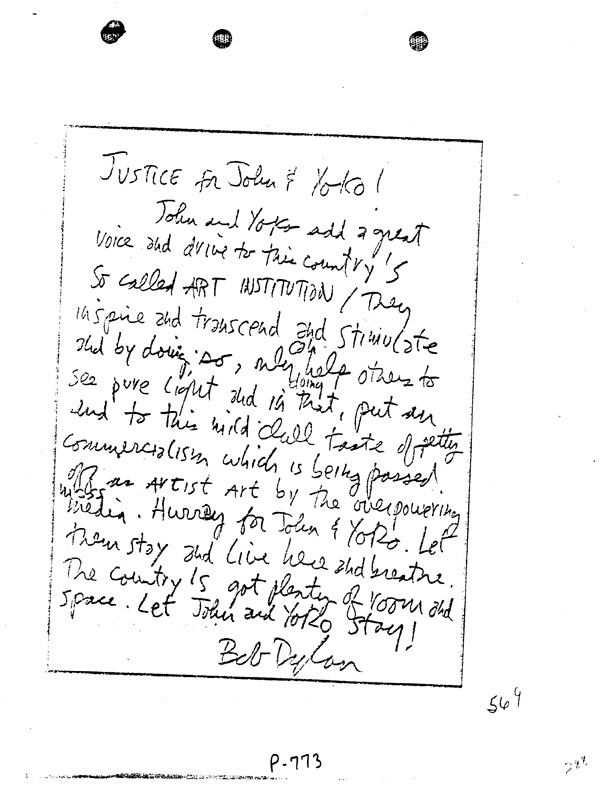 JUSTICE for John & Yoko!
John and Yoko add a great
voice and drive to this country's
so called ART INSTITUTION / They
inspire and transcend and stimulate
and by doing so, only can help others to
see pure light and in doing that, put an
end to this mild dull taste of petty
commercialism which is being passed
off as ARTIST ART by the overpowering
mass media. Hurray for John & Yoko. Let
them stay and live here and breathe.
The country's got plenty of room and
space. Let John and Yoko stay!
Bob Dylan
564
P-773